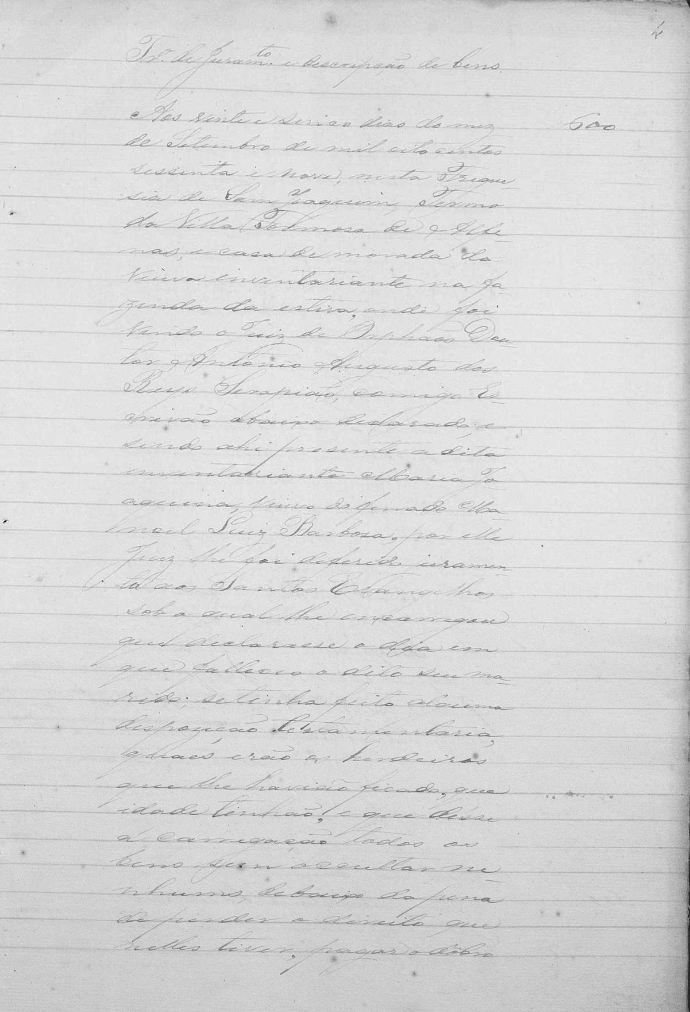 4
Tr.º de Juram.to e descripção de bens.
600
Aos vinte e sinco dias do mez
de Setembro de mil oito centos
sessenta e nove, nesta Fregue
sia de Sam Joaquim, Termo
da Villa Formosa de Alfe-
nas, e casa de morada da
viuva inventariante na fa
zenda da estiva, onde foi
vindo o Juiz de Orphaos Dou
tor Antonio Augusto dos
Reys Serapião, comigo Es-
crivão abaixo declarado, e
sendo ahi presente a dita
inventariante Maria Jo
aquina, viuva do finado Ma-
noel Luiz Barbosa, por elle
Juiz lhe foi deferido juramen-
to aos Santos Evangelhos
sob o qual lhe encarregou
que declarasse o dia em
que falleceo o dito seu ma-
rido; se tinha feito alguma
disposição testamentaria,
quaes erão os herdeiros
que lhe haviào ficado, que
idade tinhão, e que désse
á carregação todos os
bens sem occultar ne
nhums, debaixo da pena
de perder o direito que
nelles tiver, pagar o dobro